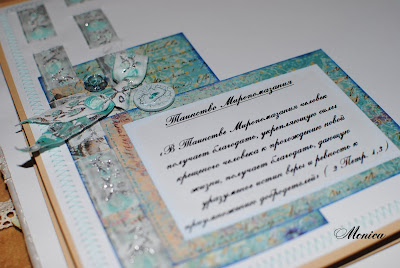 Таинство Миропомазания
«В Таинстве Миропомазания человек
получает благодать, укрепляющую силы
крещеного человека к прохождению новой
жизни, получает благодать, данную
уразумного истин веры и ревность к
приумножению добродетелей» ( 2 Петр. 1.3)
Monica